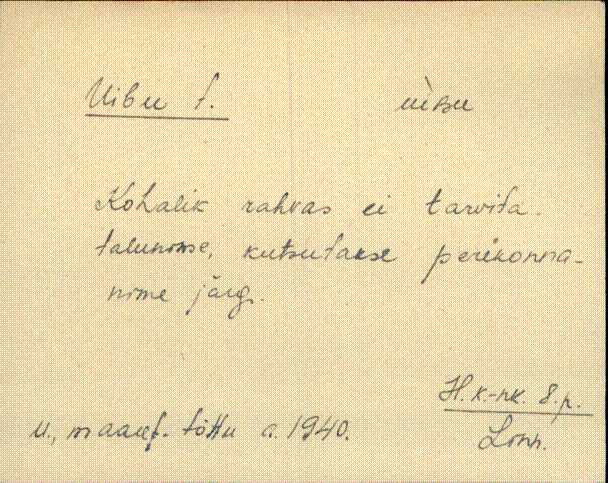 Uibu t. ùiʙu
Kohalik rahvas ei tarvita
talunime, kutsutakse perekonna-
nime järg.
H. k.-nk. 8. p.
U., maaref. tõttu a. 1940.
Lonn.